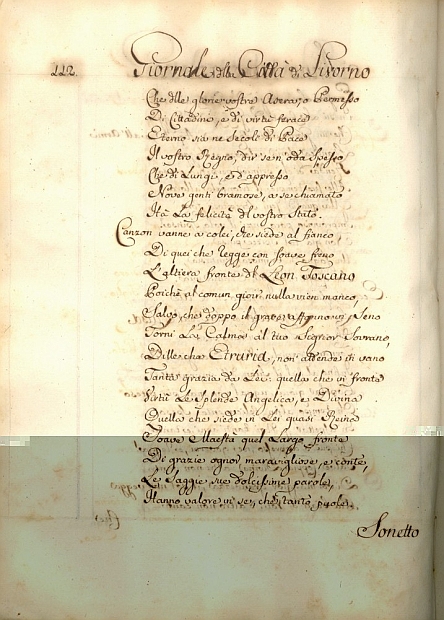 112.
Giornale della Città di Livorno
Che dlle glorie vostre Ascra, o Permesso
Di Cittadino, e di virtù ferace
Eterno sia ne secoli di Pace
Il vostro Regno, dir sen' oda spesso
Che di Lungi, e d'appresso
Nove genti bramose, a se chiamato
Hà La felicità dl vostro stato.
Canzon vanne a colei, che siede al fianco
Di quei che regge con soave freno
L'altiera fronte dl Leon Toscano
Poichè al comun gioir nulla vien manco,
Salvo, che doppo il grave affanno in seno
Torni La Calma al tuo Signor Sovrano,
Dille cha Etruria, non attende in vano
Tanta grazia da Lei: quella che in fronte
Virtù Le splende Angelica, e Divina
Quella che siede in Lei quasi Reina
Soave Maestà quel Largo fronte
Di grazie ognor maravigliose, e conte,
Le saggie sue dolcissime parole,
Hanno valore in se, che tanto puole
Sonetto